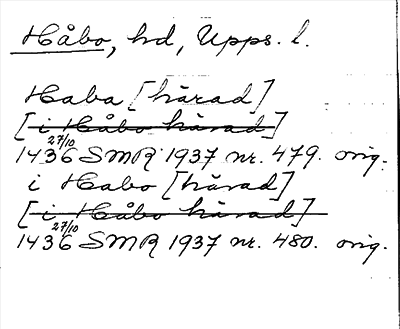 Håbo, hd, Upps. l.
Haba [härad]
[i Håbo härad]
27/10
1436 SMR 1937 nr. 479. orig.
i Habo [härad]
[i Håbo härad]
27/10
1436 SMR 1937 nr. 480. orig.